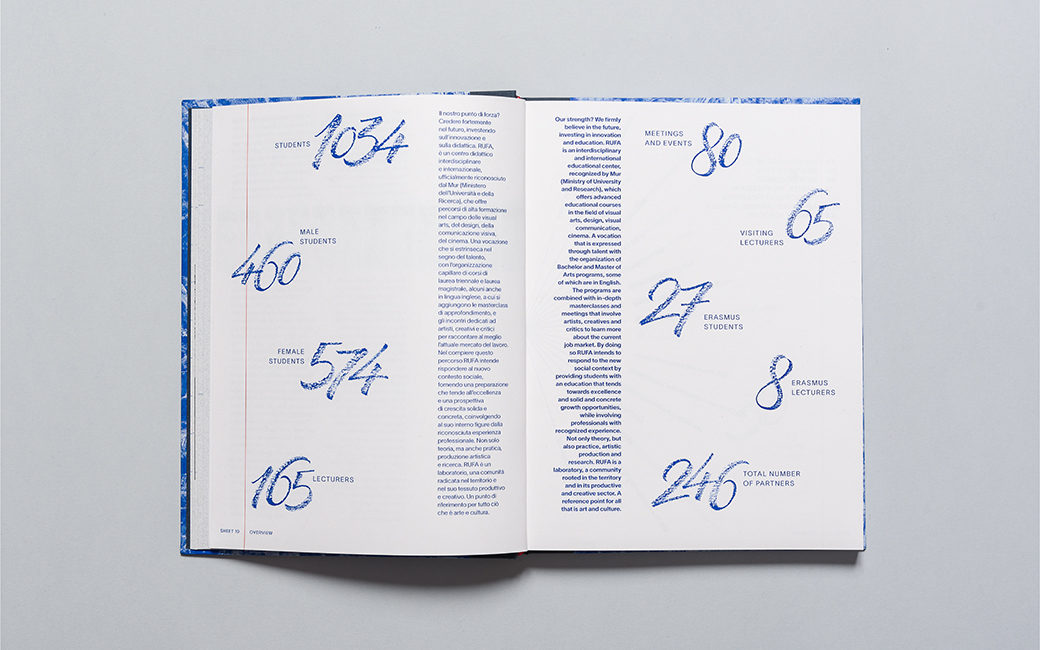 STUDENTS 1034
MALE
STUDENTS
460
FEMALE
STUDENTS
574
165 LECTURERS
SHEET 10 OVERVIEW
Il nostro punto di forza?
Credere fortemente
nel futuro, investendo
sull'innovazione e
sulla didattica. RUFA,
è un centro didattico
interdisciplinare
e internazionale,
ufficialmente riconosciuto
dal Mur (Ministero
dell'Università e della
Ricerca), che offre
percorsi di alta formazione
nel campo delle visual
arts, del design, della
comunicazione visiva,
del cinema. Una vocazione
che si estrinseca nel
segno del talento,
con l'organizzazione
capillare di corsi di
laurea triennale e laurea
magistrale, alcuni anche
in lingua inglese, a cui si
aggiungono le masterclass
di approfondimento, e
gli incontri dedicati ad
artisti, creativi e critici
per raccontare al meglio
l'attuale mercato del lavoro.
Nel compiere questo
percorso RUFA intende
rispondere al nuovo
contesto sociale,
fornendo una preparazione
che tende all'eccellenza
e una prospettiva
di crescita solida e
concreta, coinvolgendo
al suo interno figure dalla
riconosciuta esperienza
professionale. Non solo
teoria, ma anche pratica,
produzione artistica
e ricerca. RUFA è un
laboratorio, una comunità
radicata nel territorio e
nel suo tessuto produttivo
e creativo. Un punto di
riferimento per tutto ciò
che è arte e cultura.
Our strength? We firmly
believe in the future,
investing in innovation
and education. RUFA
is an interdisciplinary
and international
educational center,
recognized by Mur
(Ministry of University
and Research), which
offers advanced
educational courses
in the field of visual
arts, design, visual
communication,
cinema. A vocation
that is expressed
through talent with
the organization of
Bachelor and Master of
Arts programs, some
of which are in English.
The programs are
combined with in-depth
masterclasses and
meetings that involve
artists, creatives and
critics to learn more
about the current
job market. By doing
so RUFA intends to
respond to the new
social context by
providing students with
an education that tends
towards excellence
and solid and concrete
growth opportunities,
while involving
professionals with
recognized experience.
Not only theory, but
also practice, artistic
production and
research. RUFA is a
laboratory, a community
rooted in the territory
and in its productive
and creative sector. A
reference point for all
that is art and culture.
MEETINGS
AND EVENTS
80
65
VISITING
LECTURERS
27
ERASMUS
STUDENTS
8
ERASMUS
LECTURERS
246
TOTAL NUMBER
OF PARTNERS